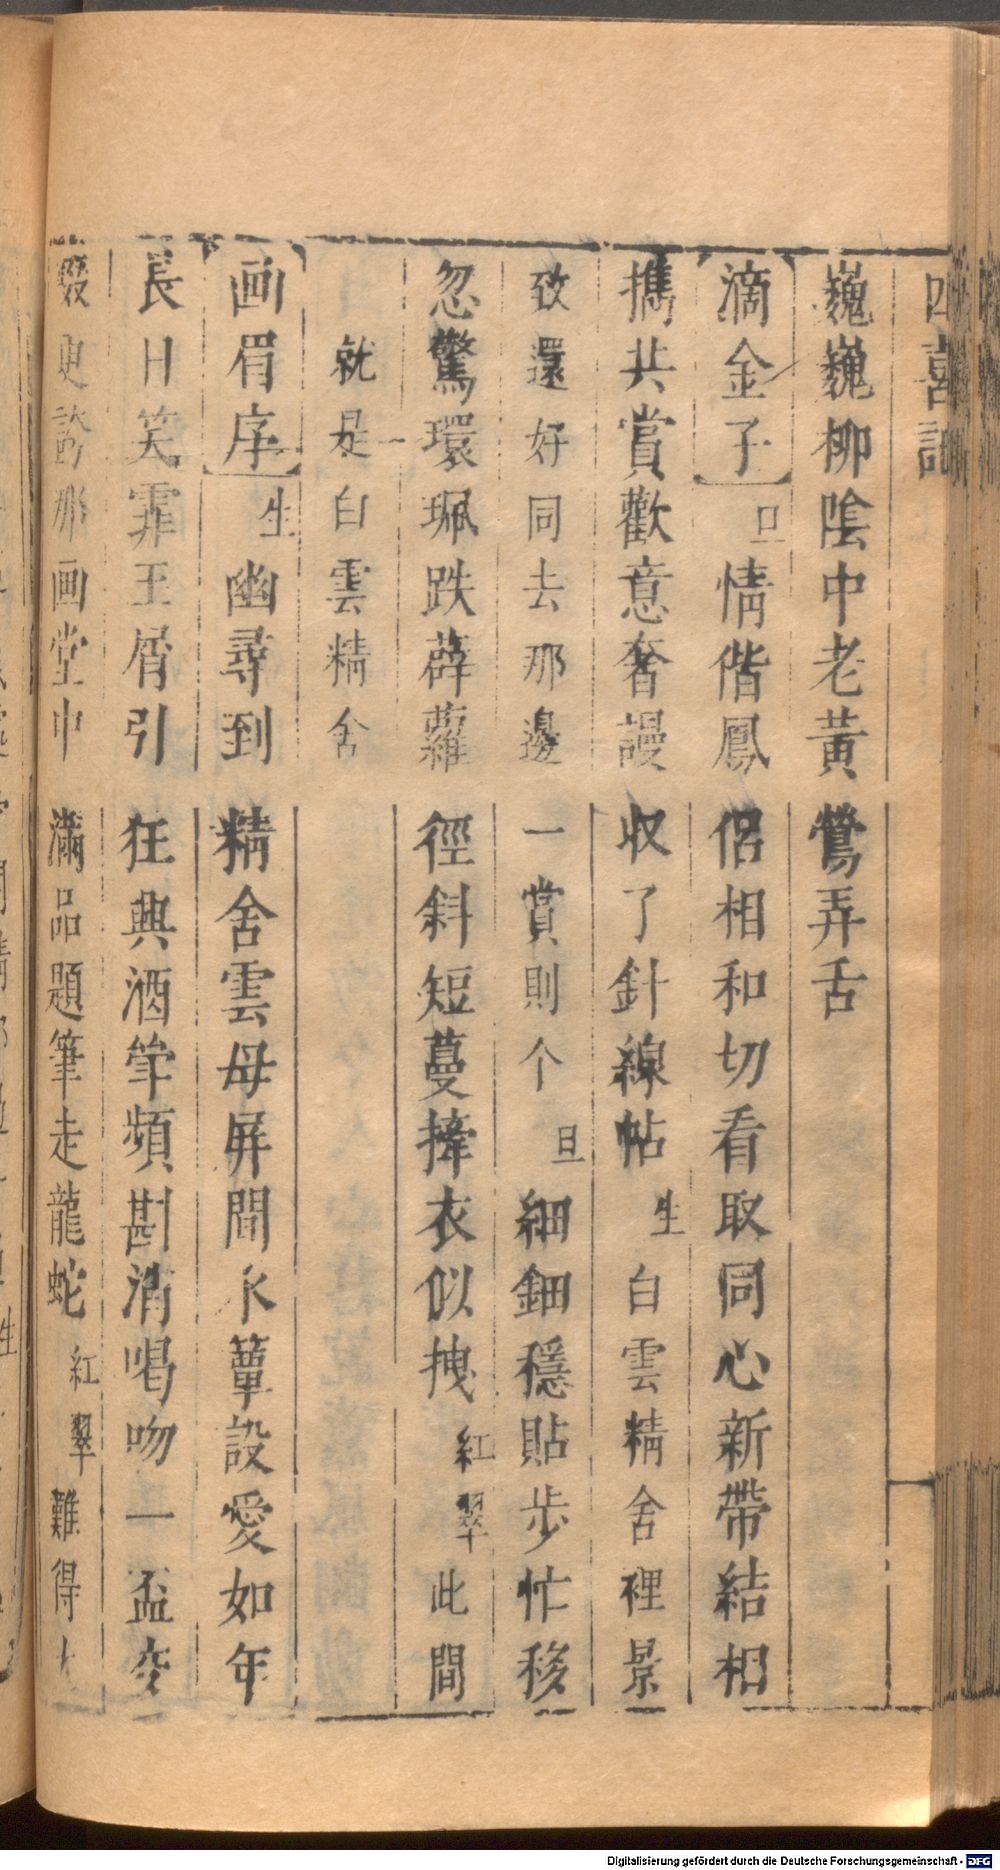 四喜記
巍巍柳陰中老黃鶯弄舌
滴金子 旦 情偕鳳侶相和切看取同心新帶結相
攜共賞歡意奢謾收了針線帖 生 白雲精舍裡景
致還好同去那邊一賞則个 旦 細鈿穩貼步忙移
忽驚環珮跌薜蘿徑斜短蔓撁衣似拽 紅翠 此間
就是白雲精舍
画眉序 生 幽尋到精舍雲母屏間氷簟設愛如年
長日笑霏玉屑引狂興酒筭頻斟消喝吻一盃
更誇那画堂中滿品題筆走龍蛇 紅翠 難得
Digitalisierung gefördert durch die Deutsche Forschungsgemeinschaft - DFG